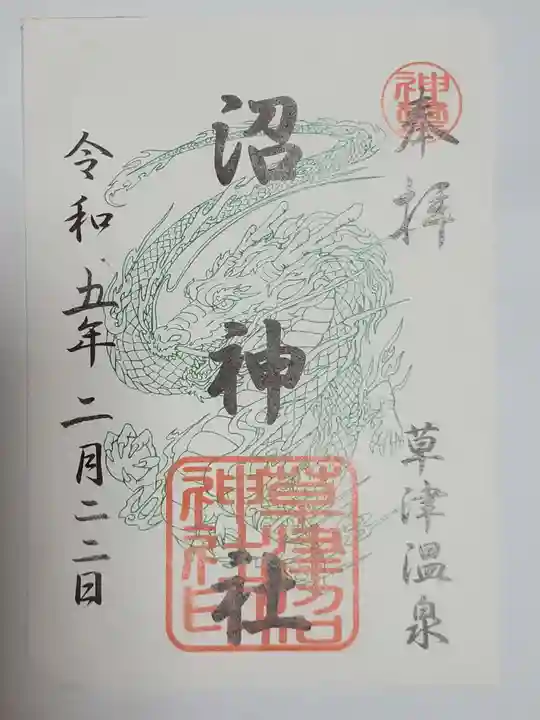 神璽
奉拝
草津温泉
沼神社
草津沼
神社印
令和五年二月二二日